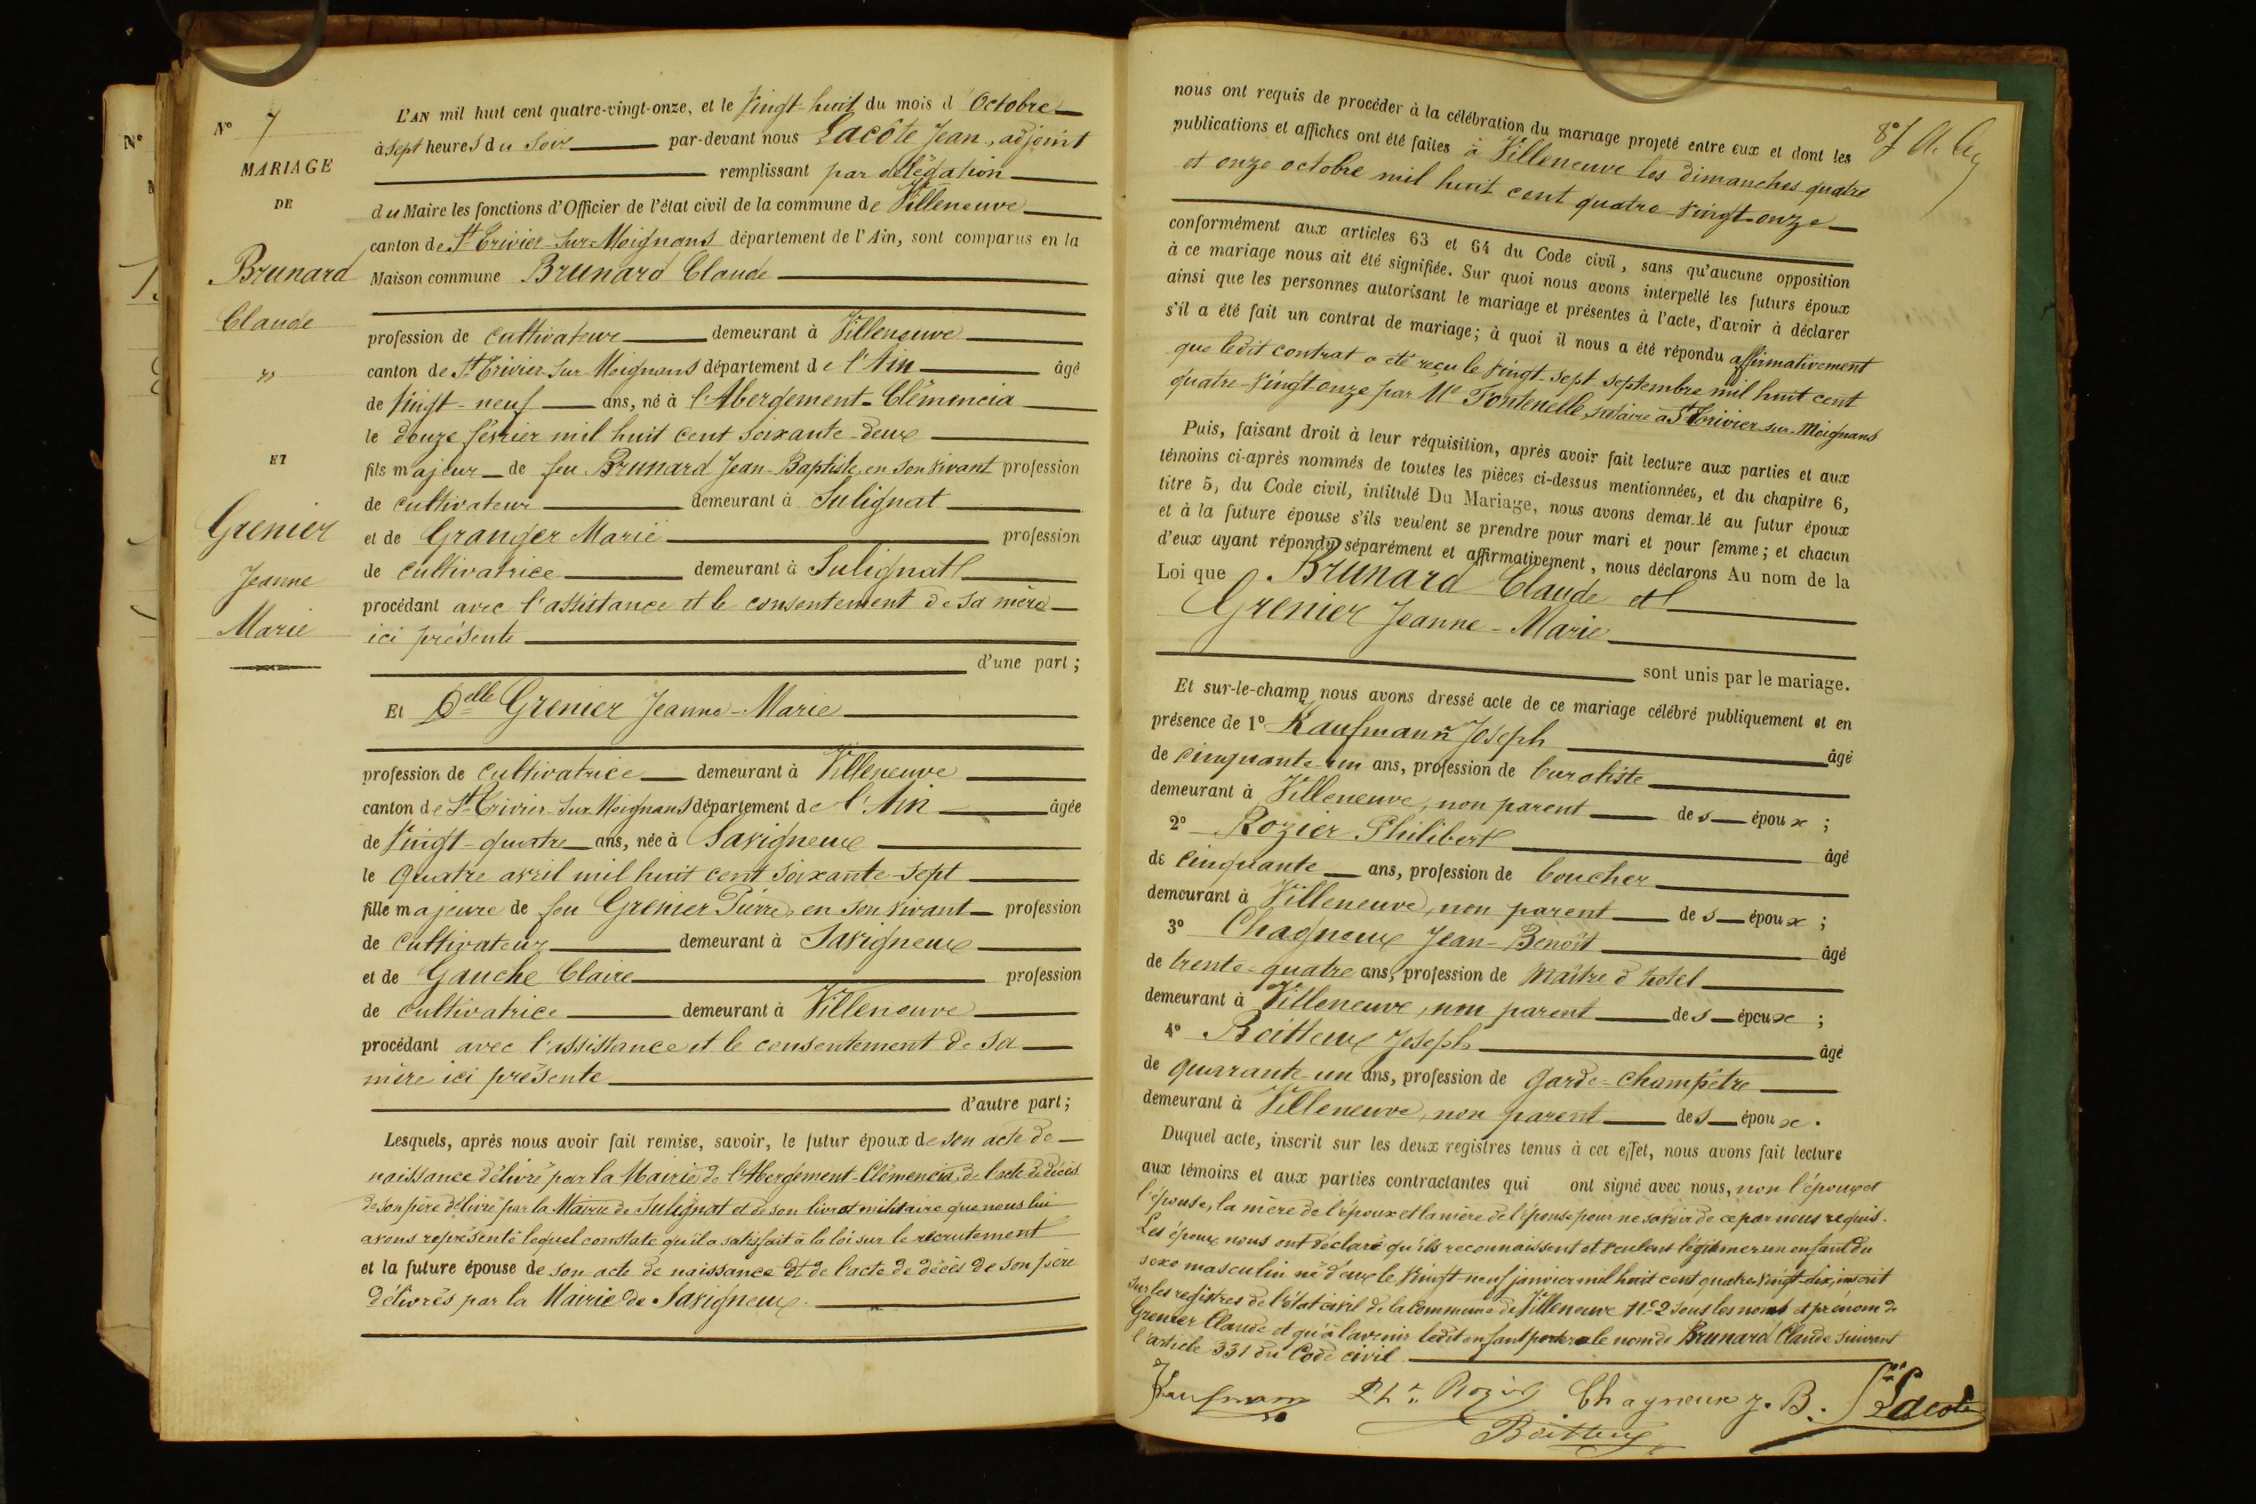 N° 7
MARIAGE
DE
Brunard
Claude
"
ET
Grenier
Jeanne
Marie
L'AN mil huit cent quatre-vingt-onze, et le Vingt-huit du mois d'Octobre
à sept heures du soir par-devant nous Lacôte Jean, adjoint
remplissant par délégation
du Maire les fonctions d'Officier de l'état civil de la commune de Villeneuve
canton de St Trivier-sur-Moignans département de l'Ain, sont comparus en la
Maison commune Brunard Claude
profession de cultivateur demeurant à Villeneuve
canton de St Trivier-sur-Moignans département de l'Ain âgé
de vingt-neuf ans, né à l'Abergement-Clémencia
le douze février mil huit cent soixante-deux
fils majeur de feu Brunard Jean-Baptiste, en son vivant profession
de cultivateur demeurant à Sulignat
et de Granger Marie profession
de cultivatrice demeurant à Sulignat
procédant avec l'assistance et le consentement de sa mère
ici présente
d'une part;
Et Delle Grenier Jeanne-Marie
profession de cultivatrice demeurant à Villeneuve
canton de St Trivier-sur-Moignans département de l'Ain âgée
de Vingt-quatre ans, née à Savigneux
le quatre avril mil huit cent soixante-sept
fille majeure de feu Grenier Pierre, en son vivant profession
de cultivateur demeurant à Savigneux
et de Gauche Claire profession
de cultivatrice demeurant à Villeneuve
procédant avec l'assistance et le consentement de sa
mère ici présente
d'autre part;
Lesquels, après nous avoir fait remise, savoir, le futur époux de son acte de
naissance délivré par la Mairie de l'Abergement-Clémencia, de l'acte de décès
de son père délivré par la Mairie de Sulignat et de son livret militaire que nous lui
avons représenté lequel constate qu'il a satisfait à la loi sur le recrutement
et la future épouse de son acte de naissance et de l'acte de décès de son père
délivrés par la Mairie de Savigneux.
nous ont requis de procéder à la célébration du mariage projeté entre eux et dont les
publications et affiches ont été faites à Villeneuve les dimanches quatre
et onze octobre mil huit cent quatre-vingt-onze
conformément aux articles 63 et 64 du Code civil, sans qu'aucune opposition
à ce mariage nous ait été signifiée. Sur quoi nous avons interpellé les futurs époux
ainsi que les personnes autorisant le mariage et présentes à l'acte, d'avoir à déclarer
s'il a été fait un contrat de mariage; à quoi il nous a été répondu affirmativement
que ledit contrat a été reçu le vingt-sept septembre mil huit cent
quatre-vingt-onze par Me Fontenelle, notaire à St Trivier-sur-Moignans
Puis, faisant droit à leur réquisition, après avoir fait lecture aux parties et aux
témoins ci-après nommés de toutes les pièces ci-dessus mentionnées, et du chapitre 6,
titre 5, du Code civil, intitulé Du Mariage, nous avons demandé au futur époux
et à la future épouse s'ils veulent se prendre pour mari et pour femme; et chacun
d'eux ayant répondu séparément et affirmativement, nous déclarons Au nom de la
Loi que Brunard Claude et
Grenier Jeanne-Marie
sont unis par le mariage.
Et sur-le-champ nous avons dressé acte de ce mariage célébré publiquement et en
présence de 1° Kaufmann Joseph âgé
de cinquante-un ans, profession de buraliste
demeurant à Villeneuve, non parent des époux;
2° Rozier Philibert âgé
de cinquante ans, profession de boucher
demeurant à Villeneuve, non parent des époux;
3° Chagneux Jean-Benoît âgé
de trente-quatre ans, profession de maître d'hotel
demeurant à Villeneuve, non parent des époux;
4° Boitteux Joseph âgé
de quarante-un ans, profession de garde-champêtre
demeurant à Villeneuve, non parent des époux.
Duquel acte, inscrit sur les deux registres tenus à cet effet, nous avons fait lecture
aux témoins et aux parties contractantes qui ont signé avec nous, non l'époux et
l'épouse, la mère de l'époux et la mère de l'épouse pour ne savoir de ce par nous requis.
Les époux nous ont déclaré qu'ils reconnaissent et veulent légitimer un enfant du
sexe masculin né d'eux le vingt-neuf janvier mil huit cent quatre-vingt-dix, inscrit
sur les registres de l'état civil de la commune de Villeneuve N° 2 sous les noms et prénom de
Grenier Claude et qu'à l'avenir ledit enfant portera le nom de Brunard Claude suivant
l'article 331 du Code civil.
Kaufmann Pht Rozier Chagneux J. B. Lacote
Boitteux